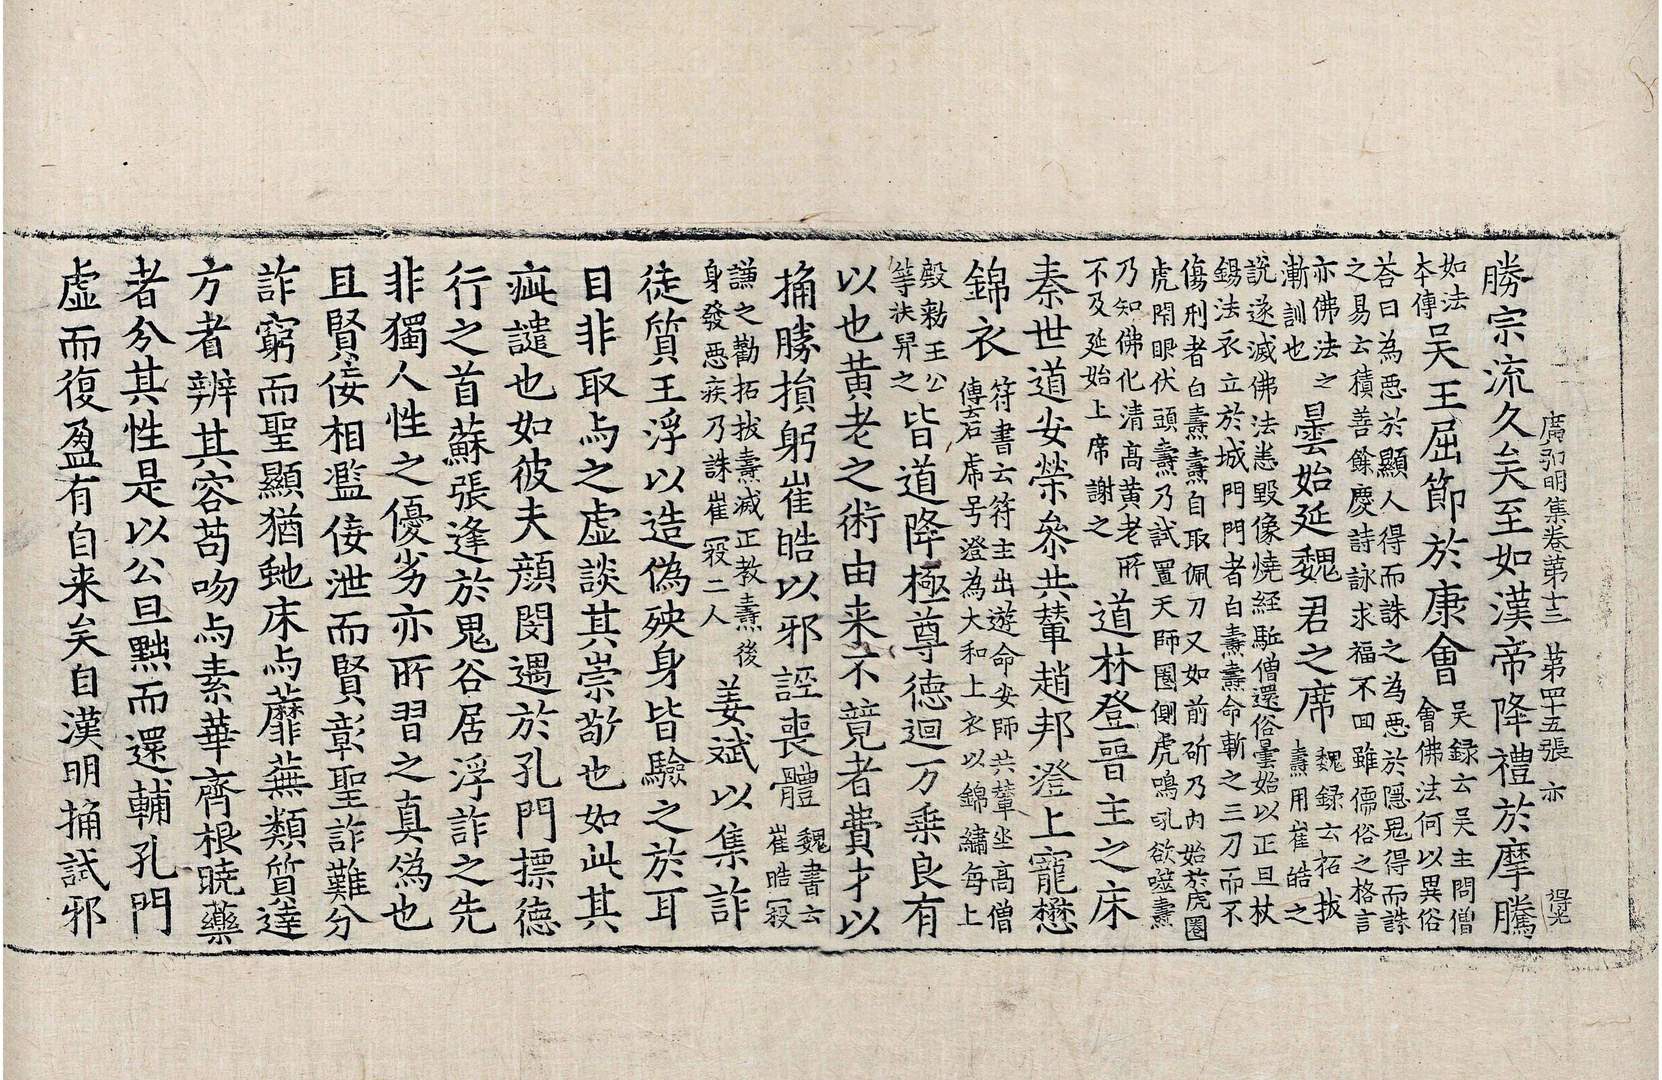 廣弘明集卷第十三 第四十五張 亦
勝宗流久矣至如漢帝降禮於摩騰
如法本傳吳王屈節於康會吳録云吳主問僧會佛法何以異俗
荅曰為惡於顯人得而誅之為惡於隱鬼得而誅之易云積善餘慶詩詠求福不回雖儒俗之格言
亦佛法之漸訓也曇始延魏君之席魏録云拓拔燾用崔皓之
說遂滅佛法悉毀像燒経駈僧還俗曇始以正旦杖錫法衣立於城門門者白燾燾命斬之三刀而不
傷刑者白燾燾自取佩刀又如前斫乃內始於虎圈虎閇眼伏頭燾乃試置天師圈側虎鳴吼欲噬燾
乃知佛化清高黃老所不及延始上席謝之道林登晉主之床
秦世道安榮叅共輦趙邦澄上寵懋
錦衣符書云符主出遊命安師共輦坐高僧傳云石虎号澄為大和上衣以錦繡每上
殿勑王公等扶舁之皆道降極尊德迴万乗良有
以也黃老之術由来不競者費才以
捅勝損躬崔皓以邪誣喪體魏書云崔皓冦
謙之勸拓拔燾滅正教燾後身發惡疾乃誅崔冦二人姜斌以集詐
徒質王浮以造偽殃身皆驗之於耳
目非取与之虛談其崇敬也如此其
疵譴也如彼夫顔閔遇於孔門摽德
行之首蘇張逢於鬼谷居浮詐之先
非獨人性之優劣亦所習之真偽也
且賢𡚶佞相濫佞泄而賢彰聖詐難分
詐窮而聖顯猶虵床与蘼蕪類質達
方者辨其容苟吻与素華齊根曉藥
者分其性是以公旦黜而還輔孔門
虛而復盈有自来矣自漢明捅試邪